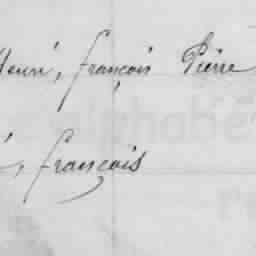 Henri, françois Pierre
, françois